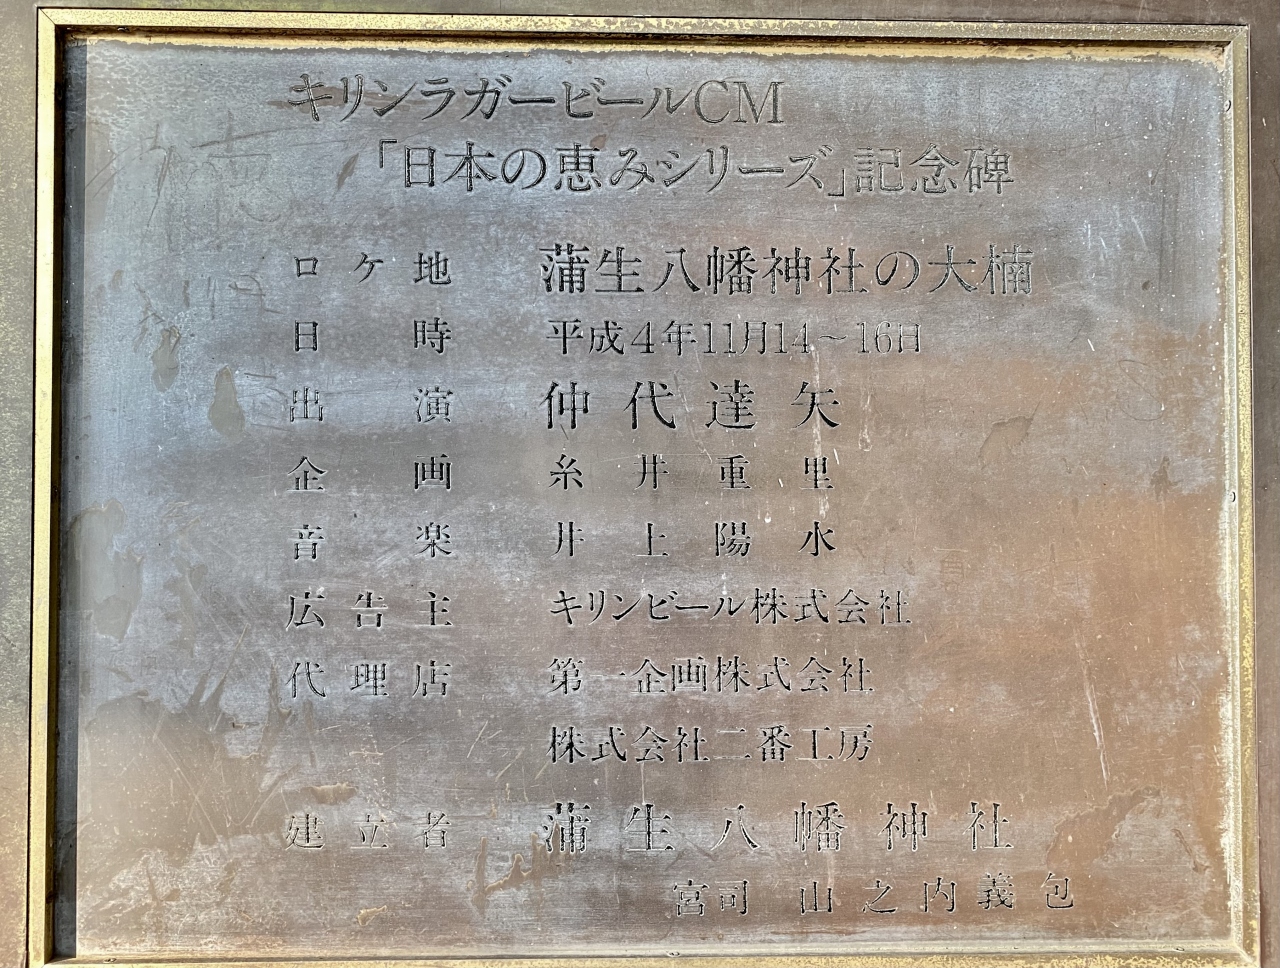 キリンラガービールCM
「日本の恵みシリーズ」記念碑
ロケ地 蒲生八幡神社の大楠
日時 平成4年11月14～16日
出演 仲代達矢
企画 糸井重里
音楽 井上陽水
広告主 キリンビール株式会社
代理店 第一企画株式会社
株式会社二番工房
建立者 蒲生八幡神社
宮司 山之内義包